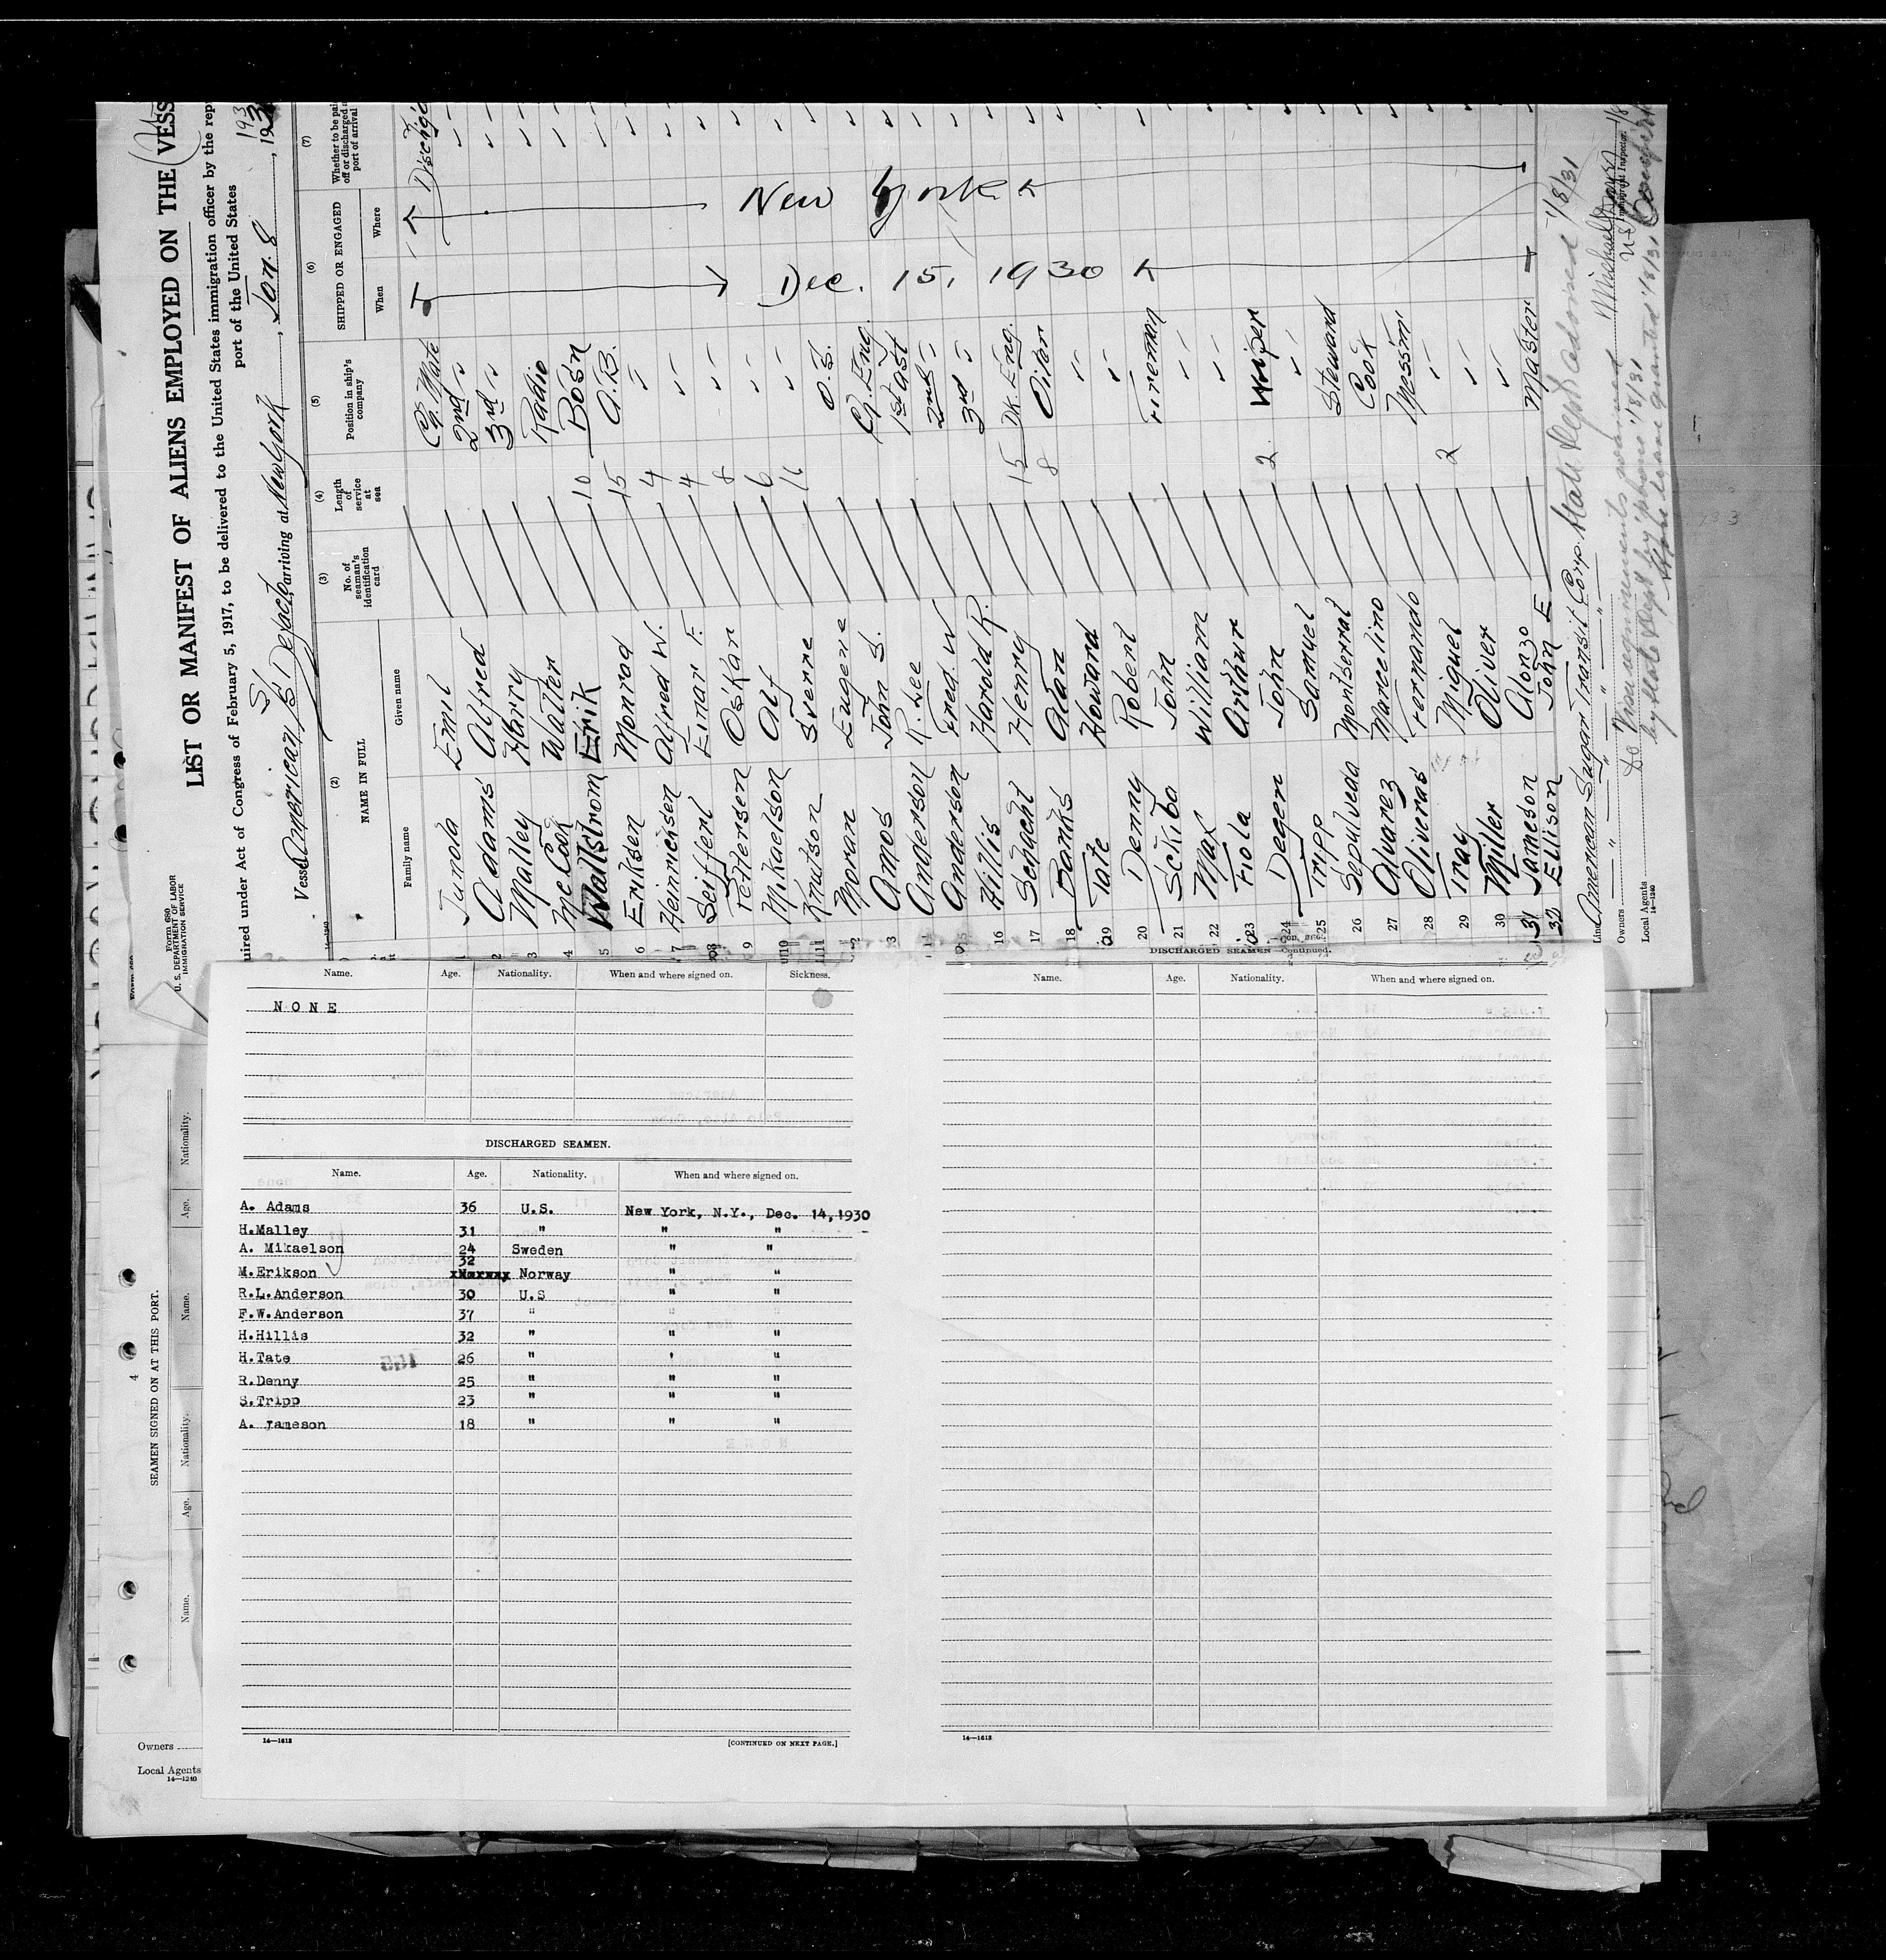 LIST OR MANIFEST OF ALIENS EMPLOYED ON THE VESS
quired under Act of Congress of February 5, 1917, to be delivered to the United States immigration officer by the rep
port of the United States
Form 680
U. S. DEPARTMENT OF LABOR
IMMIGRATION SERVICE
Vessel American SS Defacto, arriving at New York, Jan. 8, 193
14-1240
(2) (3) (4) (5) (6) (7)
NAME IN FULL
Family name Given name
No. of seaman's identification card
Length of service at sea
Position in ship's company
SHIPPED OR ENGAGED
When Where
Whether to be pai
off or discharged
port of arrival
Emil Ch. Mate Dec. 15, 1930 New York
2 Adams Alfred 2nd "
3 Malley Harry 3rd "
4 McCoy Walter Radio
5 Wallstrom Erik 10 Bosn
6 Eriksen Monrad 15 A.B.
7 Heinricksen Alfred W. 4 "
8 Seiffert Einar F. 4 "
9 Pettersen Oskar 8 "
10 Mikaelson Alf 6 "
11 Knutson Sverre 16
Moran Eugene O.S.
Amos John S. Ch. Eng.
Anderson R. Lee 1st Asst
15 Anderson Fred. W 2nd "
16 Hillis Harold R. 3rd "
17 Schacht Henry 15 Dk. Eng.
18 Banks Adan 8 Oiler
19 Tate Howard "
20 Denny Robert "
21 Sckibo John Fireman
22 Max William "
23 Fiola Arthur "
24 Degen John 2 Wiper
25 Tripp Samuel "
26 Sepulveda Montserrat Steward
27 Alvarez Marcelino Cook
28 Oliveras Fernando Messm
29 Iray Miguel 2 "
30 Miller Oliver "
31 Jameson Alonzo "
32 Ellison John E Master
Line American Sugar Transit Corp.
Owners " " "
Local Agents " " "
14-1240
State Dept advised 1/8/31
Immigrant Inspector.
by State Dept by 'phone 1/8/31
Name. Age. Nationality. When and where signed on. Sickness.
NONE
DISCHARGED SEAMEN.
Name. Age. Nationality. When and where signed on.
A. Adams 36 U.S. New York, N.Y., Dec. 14,1930
H.Malley 31 " " "
A. Mikaelson 24 Sweden " "
32
M.Erikson Norway " "
R.L.Anderson 30 U.S " "
F.W.Anderson 37 " " "
H.Hillis 32 " " "
H.Tate 26 " ' "
R.Denny 25 " " "
S.Tripp 23 " " "
A. Jameson 18 " " "
14—1612
[CONTINUED ON NEXT PAGE.]
DISCHARGED SEAMEN—Continued.
Name. Age. Nationality. When and where signed on.
14—1612
4
SEAMEN SIGNED ON AT THIS PORT.
Name. Age. Nationality. Name. Age. Nationality.
Owners
Local Agents
14—1240